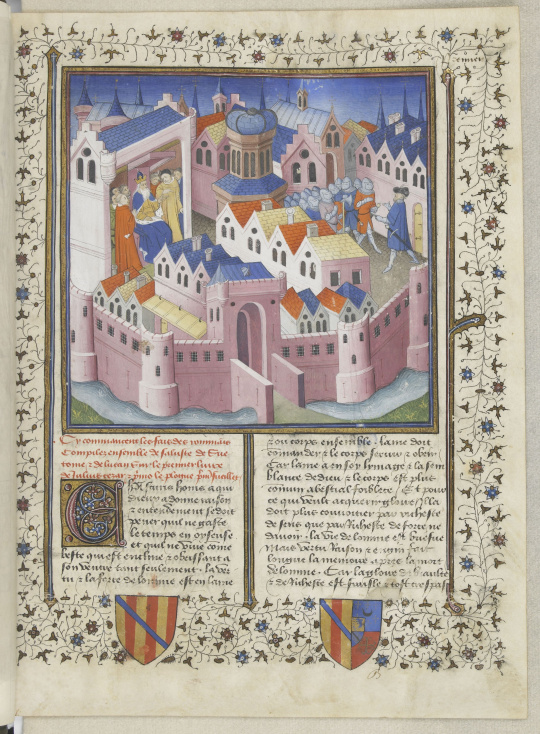 Cy commancent les fais des rommains
Compilez ensemble de saluste de Sue
tome & de lucan
de Julius cezar
Chascuns homs a qui
dieux a donne raison
& entendement se doit
pener quil ne gaste
le temps en oyseuse
et quil ne vive come
beste qui est encline & obeissant a
son ventre tant seulement . la ver
tu & la force de lomme est en lame
& ou corps ensemble . lame doit
commander & le corps servir & obeir
Car lame a en soy lymage & la sem
blance de dieu & le corps est plus
commun a bestial Et pour
ce qui veult acquerir gloire Il la
doit plus convoitier par richesse
de sens que par richesse de force ne
davoir . la vie de lomme est briefve
Mais vertu Raison & engin fait
longue la memoire apres la mort
de lomme . Car la gloire de beaulte
& de richesse est fraisle & tost trespas